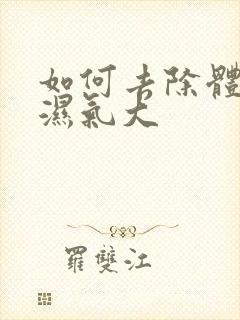 如何去除體
濕氣大
羅雙江